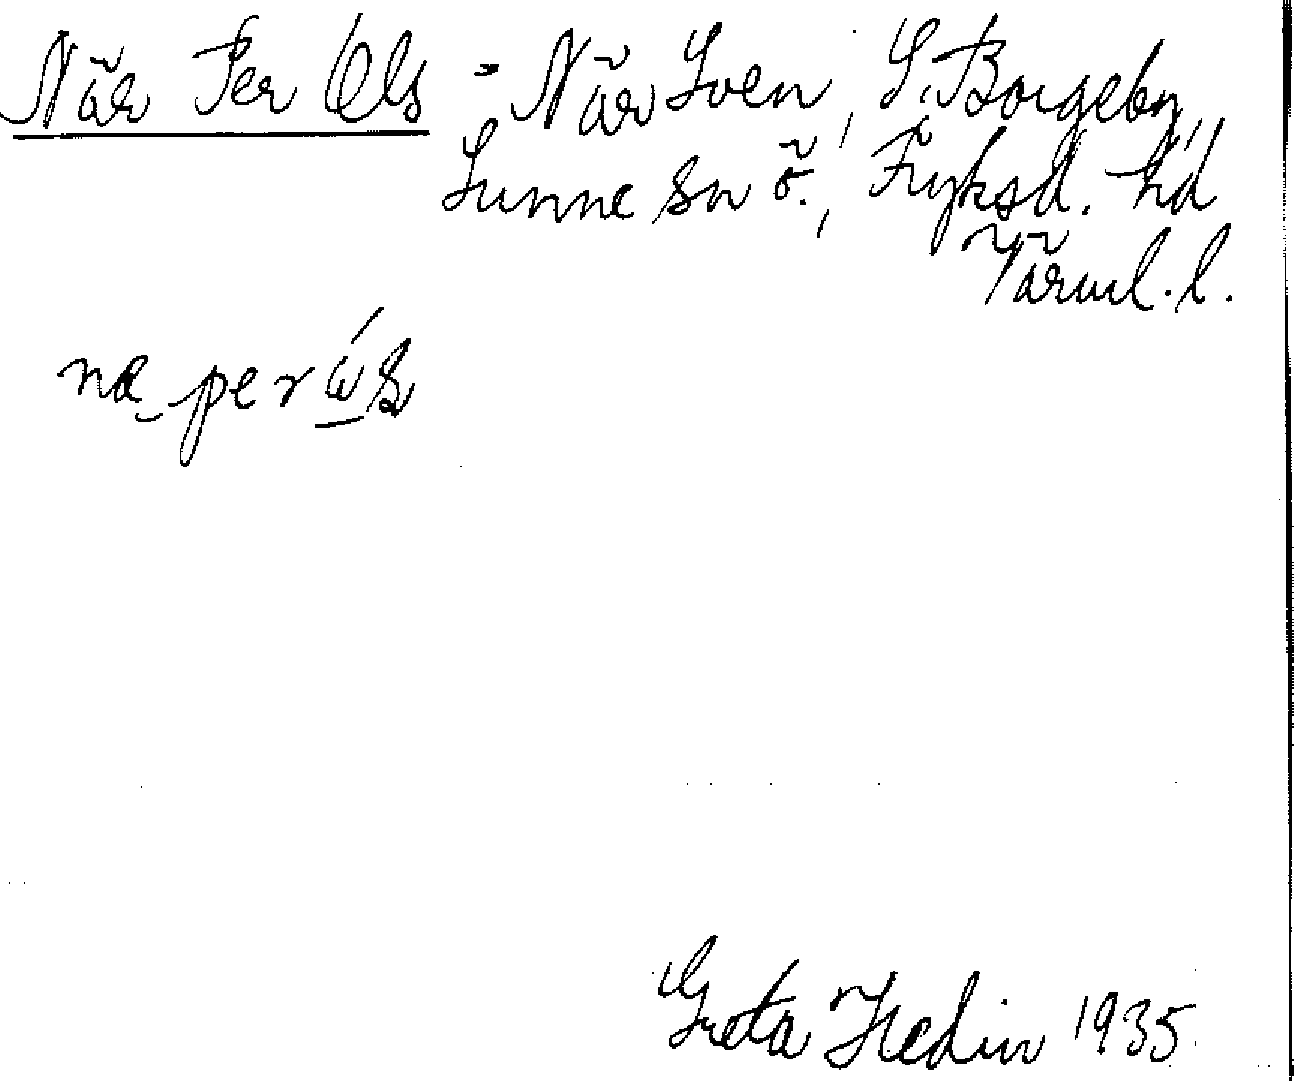 När Per Ols = När Sven, S. Borgeby,
Sunne sn ö., Fryksd. hd
Värml. l.
na per
Greta Hedin 1935.